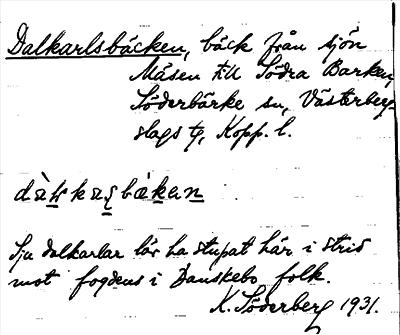 Dalkarlsbäcken, bäck från sjön
Måsen till Södra Barken,
Söderbärke sn, Västerberg-
slags tg, Kopp. l.
Sju dalkarlar lär ha stupat här i strid
mot fogdens i Danskebo folk.
K. Söderberg 1931.